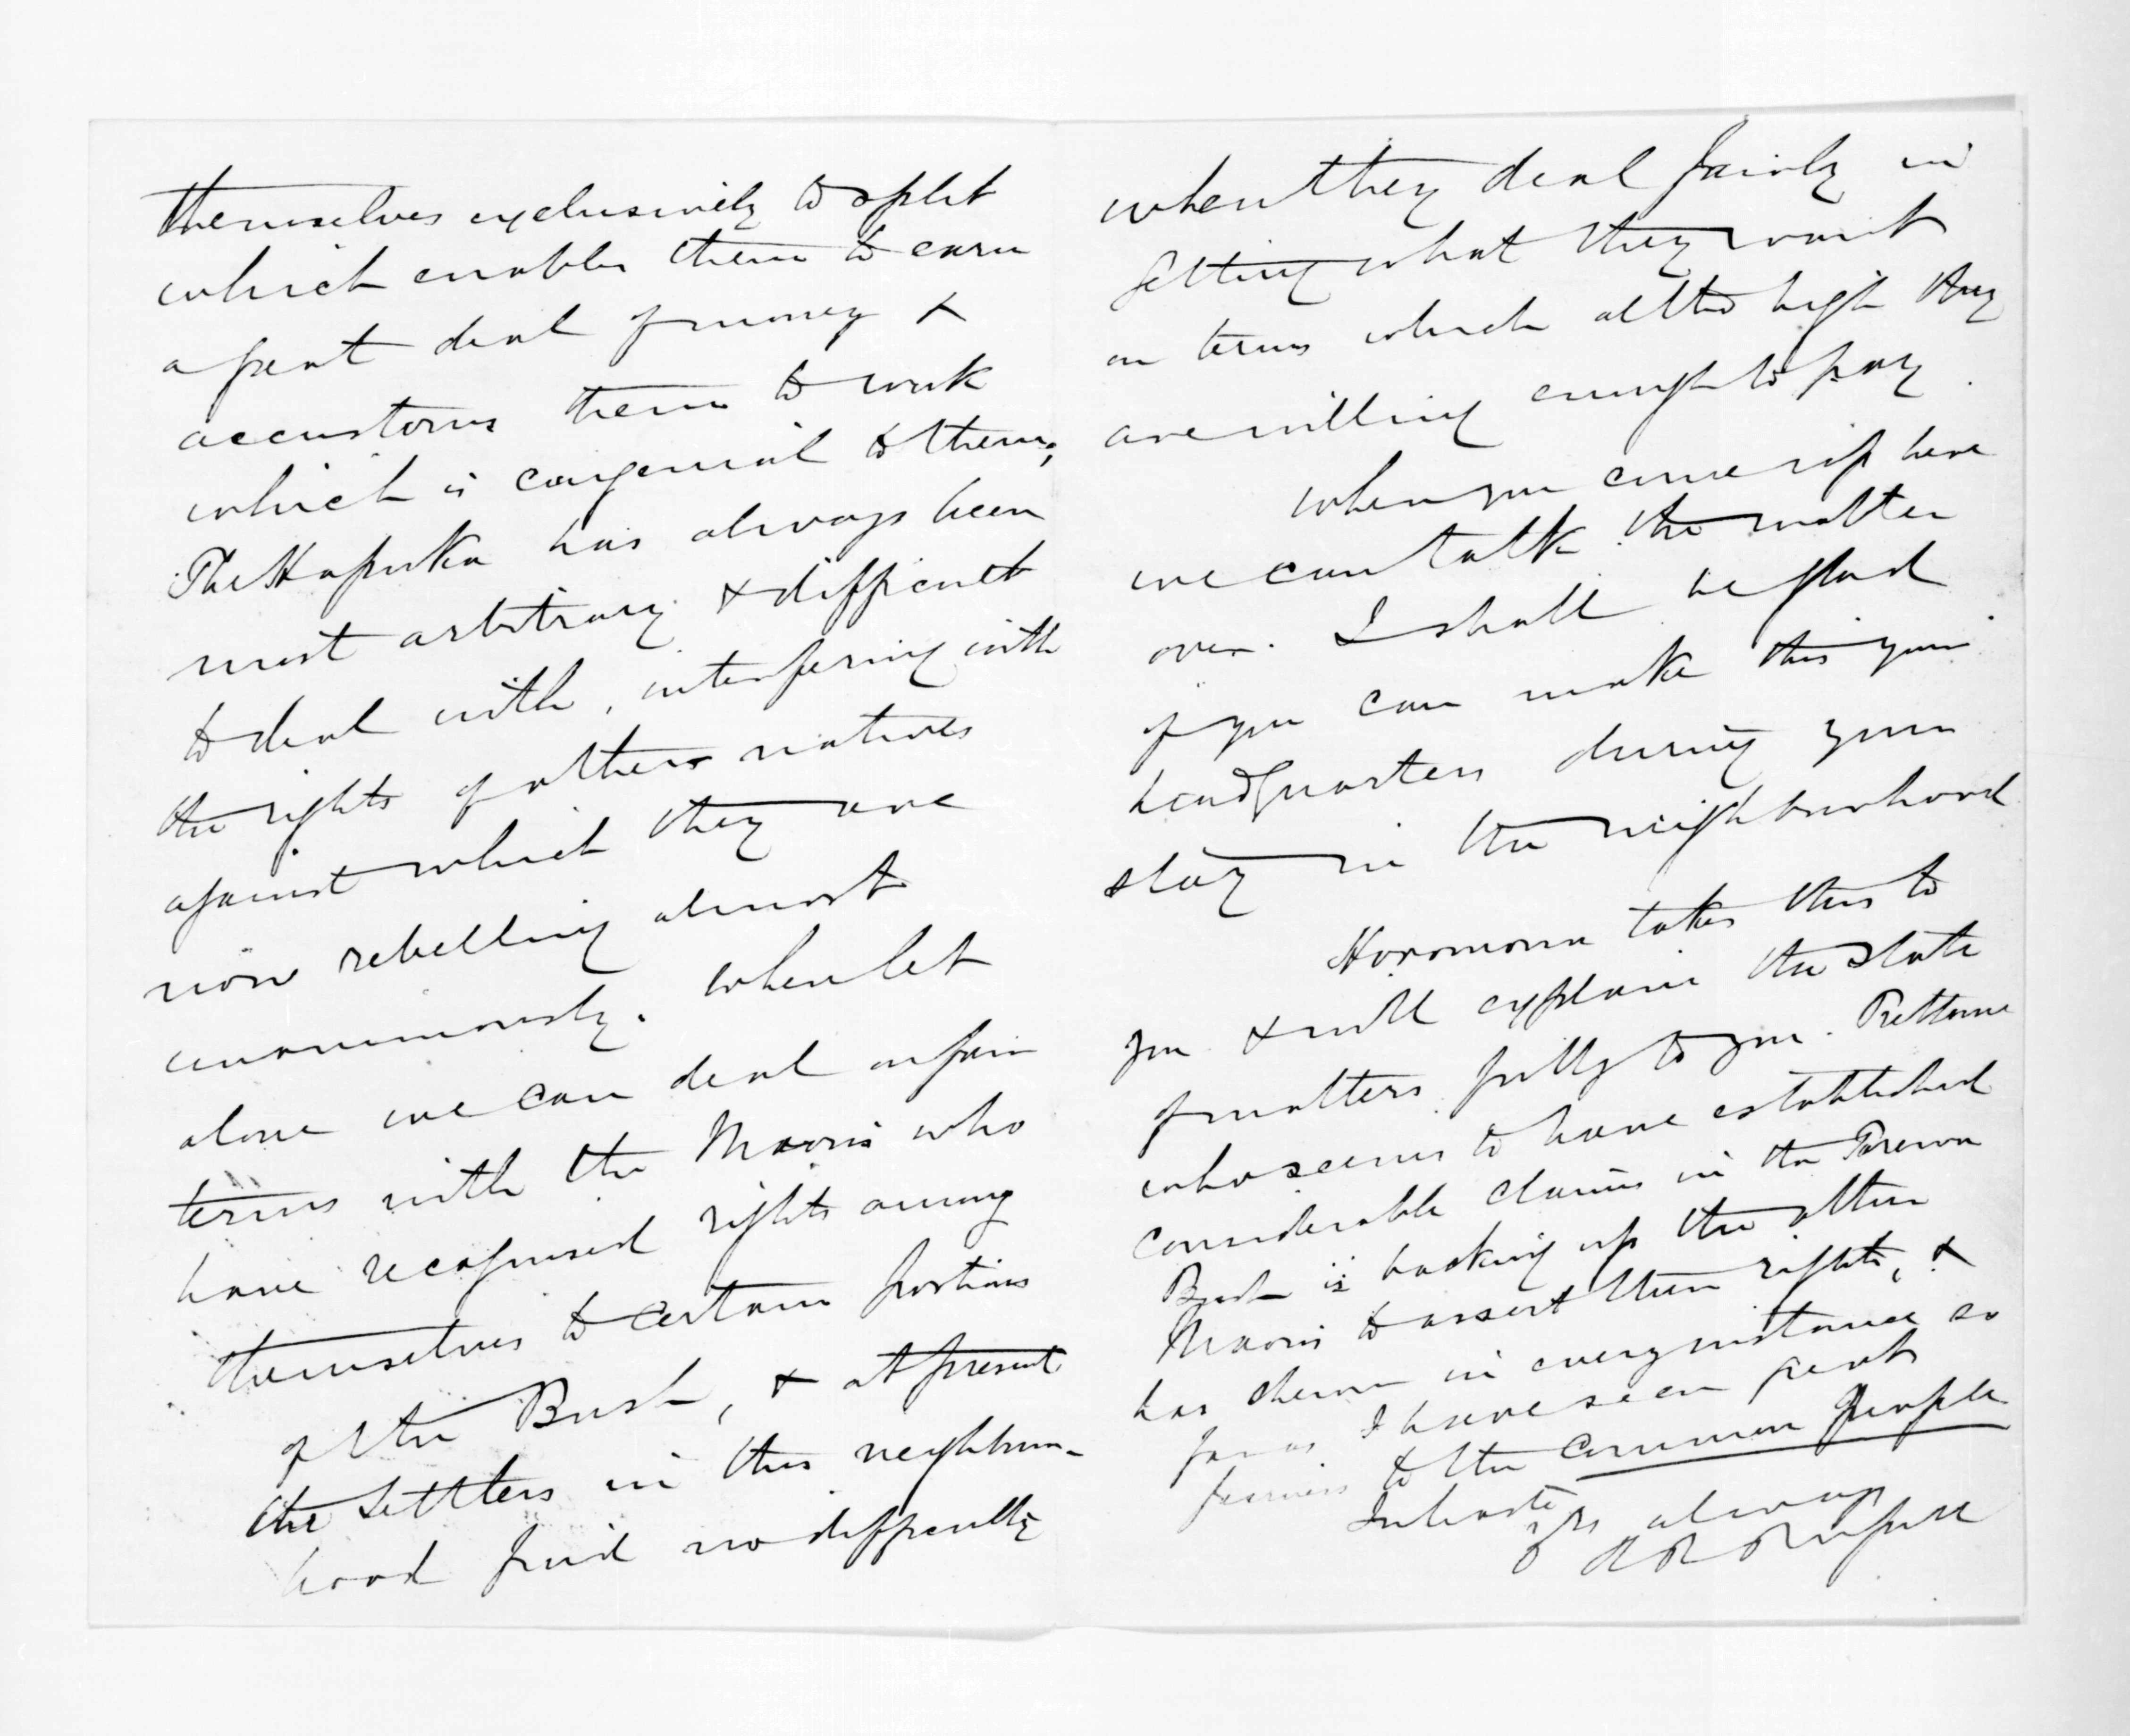 themselves exclusively to split
which enables them to earn
a great deal of money &
accustoms them to work
which is congenial to them,
The Hapuka has always been
most arbitrary & difficult
to deal with, interfering with
the rights of other natives
against which they are
now rebelling almost
unanimously. When let
alone we can deal on fair
terms with the Maoris who
have recognised rights among
themselves to certain portions
of the Bush, & at present
the settlers in this neighbour-
hood find no difficulty
when they deal fairly in
getting what they want
on terms which altho high they
are willing enough to pay.
When you come up here
we can talk the matter
over. I shall be glad
if you can make this your
headquarters during your
stay in the neighbourhood
Horomona takes this to
you & will explain the state
of matters fully to you.
who seems to have established
considerable claims in the
Bush is backing up the other
Maoris to assert their rights, &
has shewn in every instance so
far as I have seen great
fairness to the common people
In haste
yrs always
H R Russell